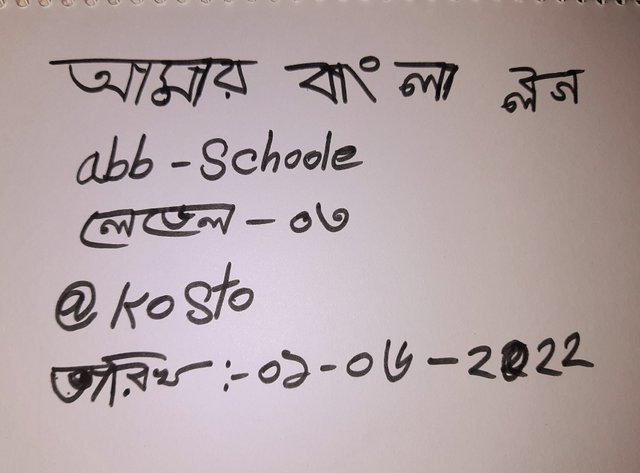 আমার বাংলা ব্লগ
abb-Schoole
লেভেল - ০৩
@Kosto
তারিখ :- ০১-০৬-2022